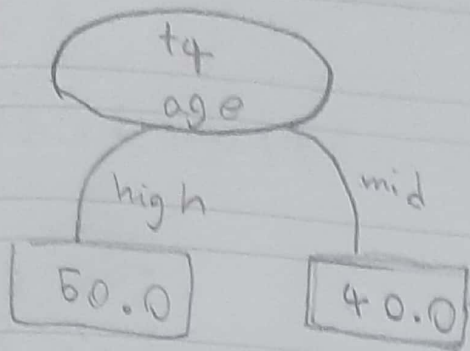 t4
age
high
mid
50.0
40.0